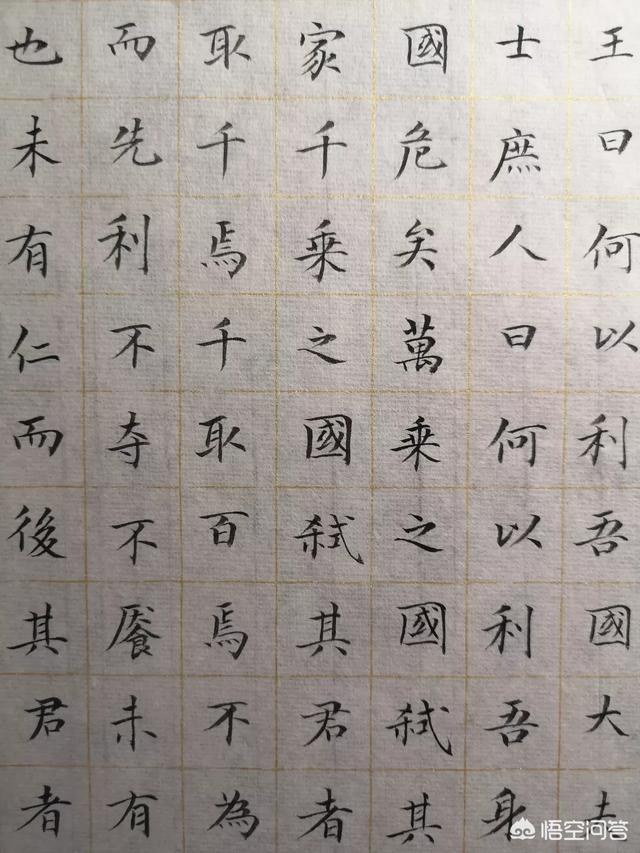 王曰何以利吾國大
士庶人曰何以利吾身
國危矣萬乘之國弒其
家千乘之國弒其君者
取千焉千取百焉不為
而先利不夺不饜未有
也未有仁而後其君者
悟空问答